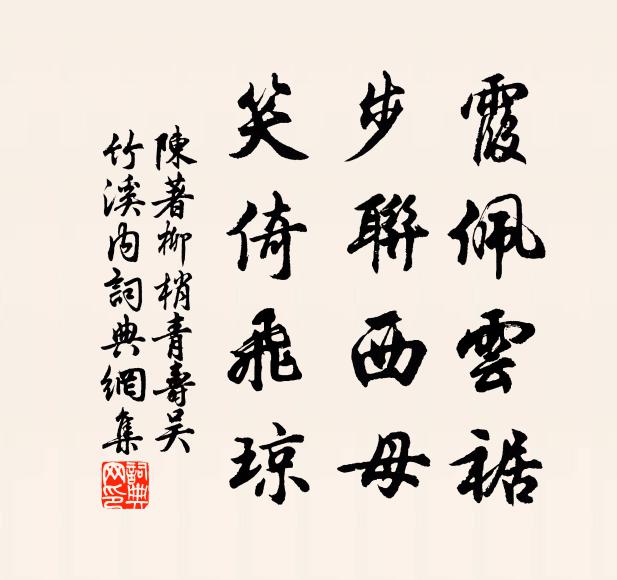 霞佩雲裾
步聯西母
笑倚飛瓊
陳著柳梢青壽吳
竹溪內詞典網集
詞典网印